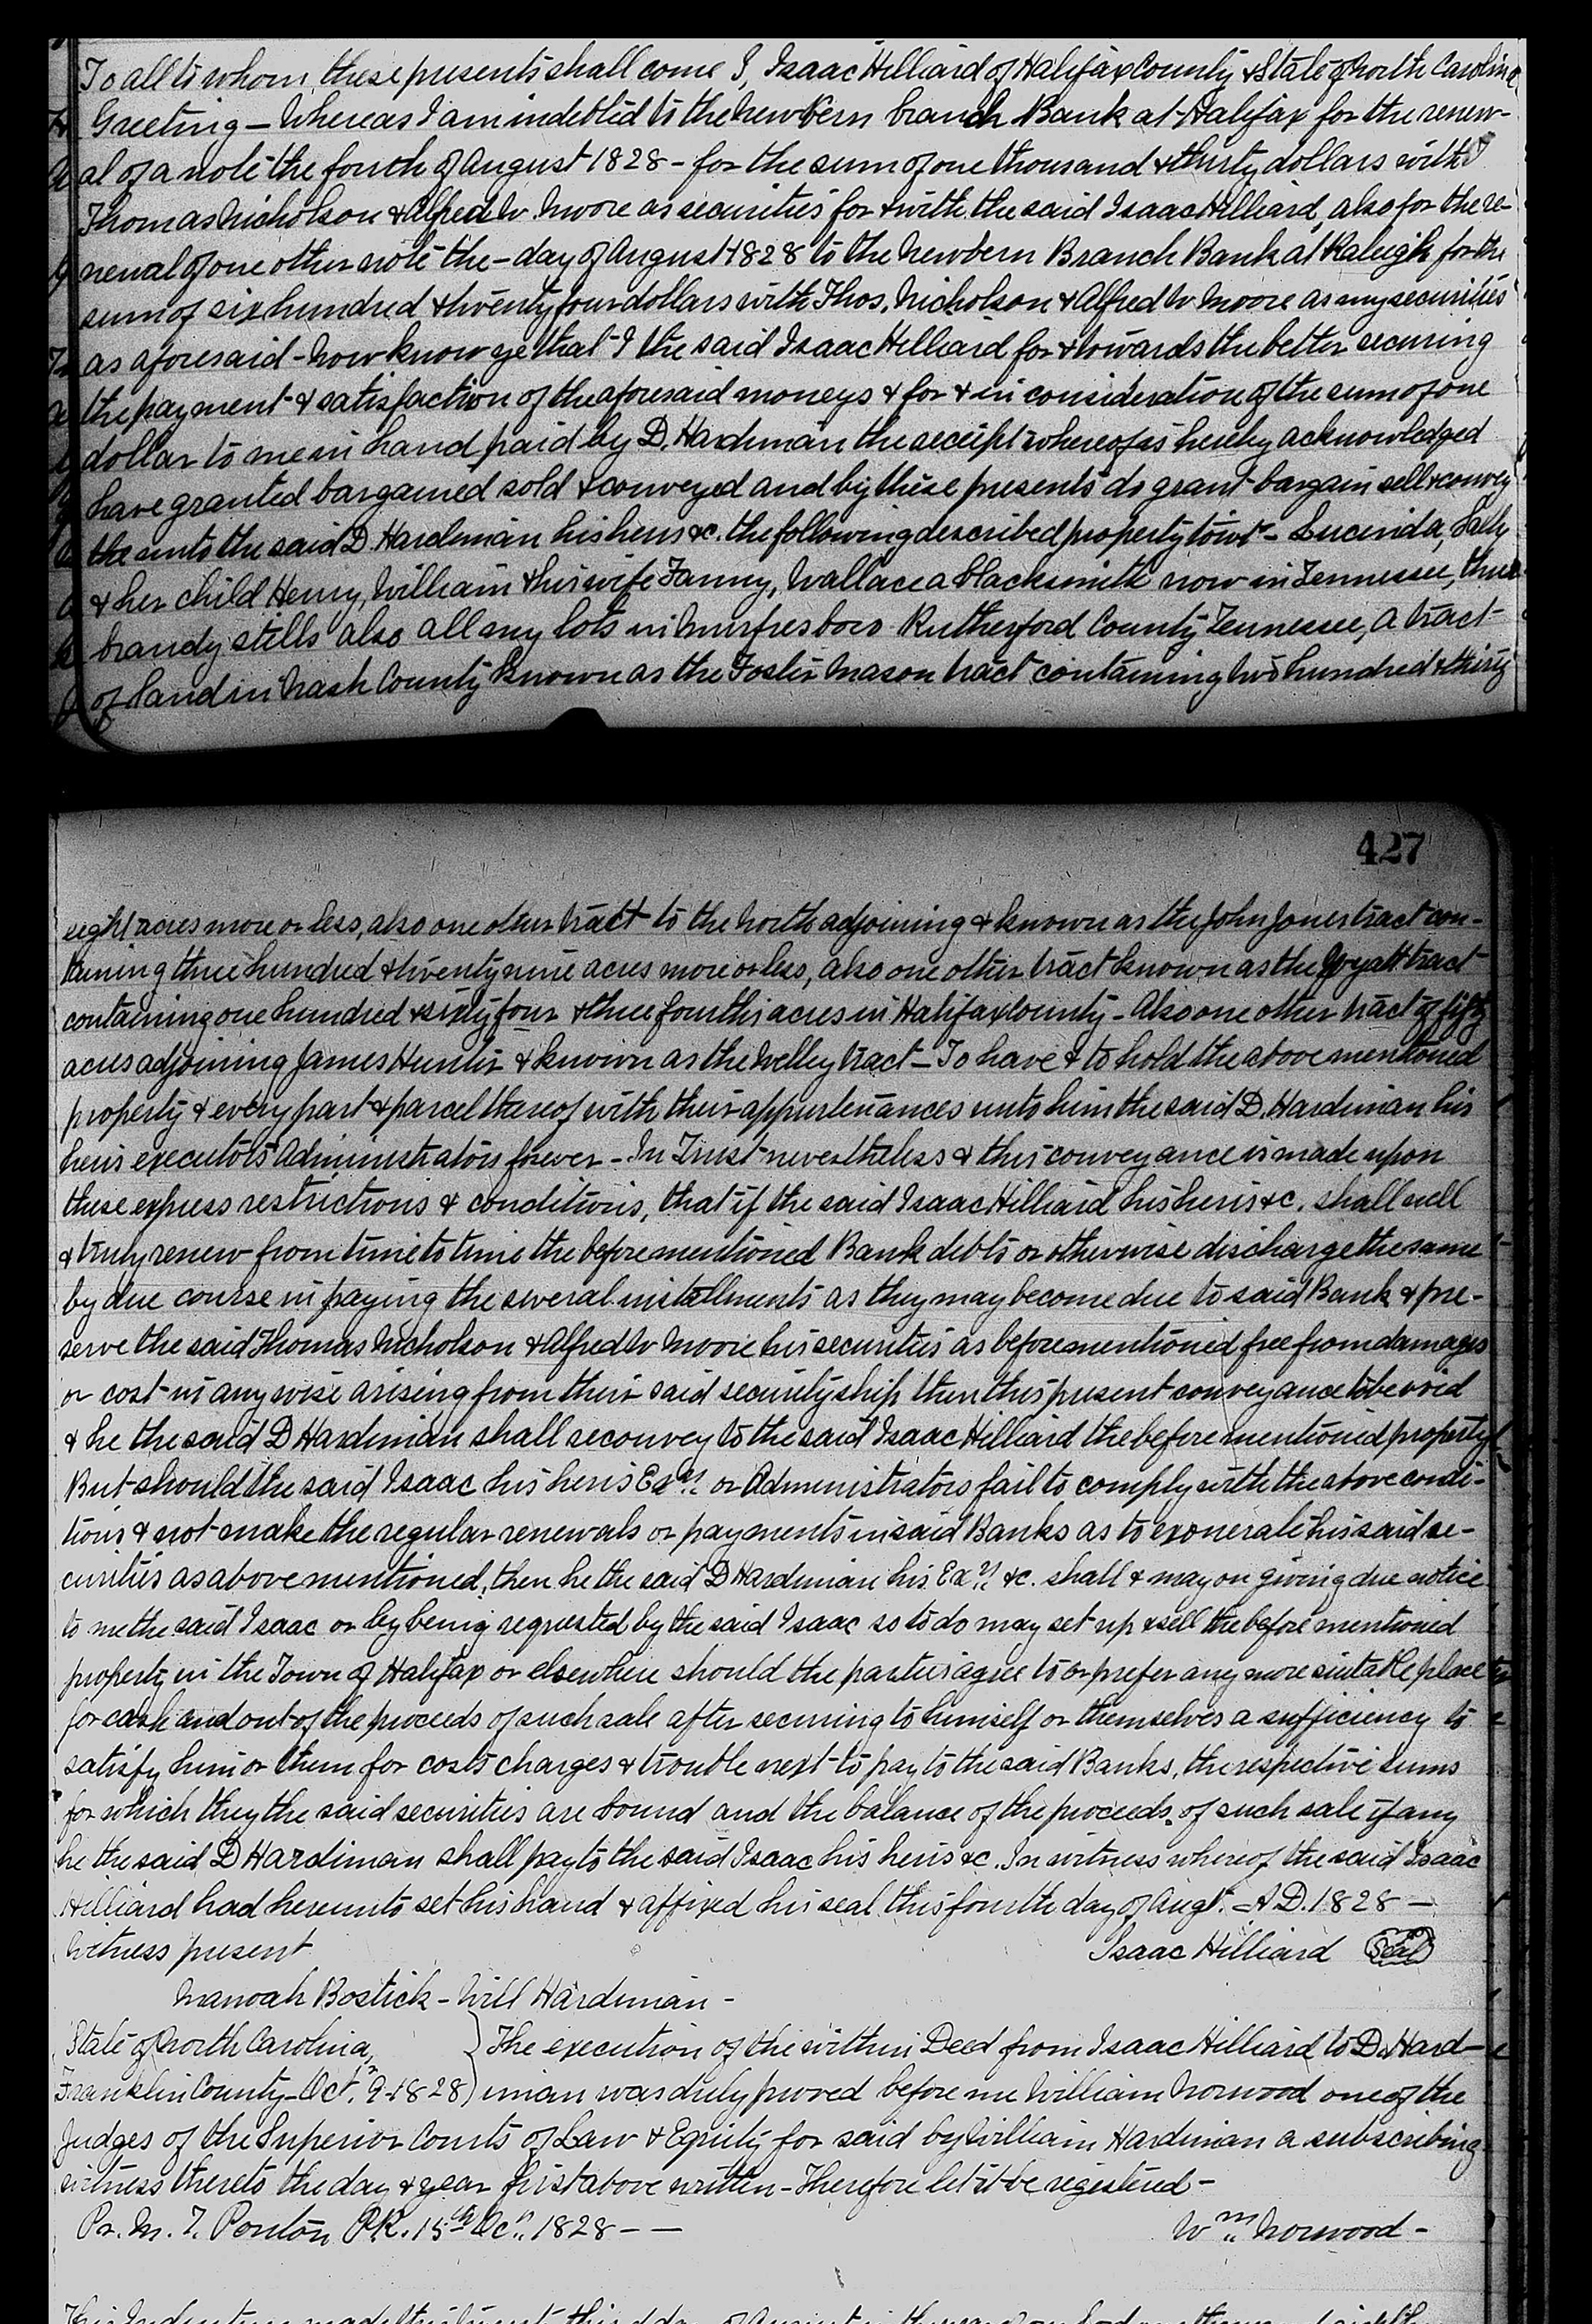 To all to whom these presents shall come I, Isaac Hilliard of Halifax County & State of North Carolina
Greeting - Whereas I am indebted to the Newbern branch Bank at Halifax for the renew-
al of a note the fourth of August 1828 - for the sum of one thousand & thirty dollars with
Thomas Nicholson & Alfred W. Moore as securities for & with the said Isaac Hilliard, also for the re-
newal of one other note the - day of August 1828 to the Newbern Branch Bank at Raleigh for the
sum of six hundred & twenty four dollars with Thos. Nicholson & Alfred W Moore as my securities
as aforesaid - Now know ye that I the said Isaac Hilliard for & towards the better securing
the payment & satisfaction of the aforesaid moneys & for & in consideration of the sum of one
dollar to me in hand paid by D. Hardiman the receipt whereof is hereby acknowledged
have granted bargained sold & conveyed and by these presents do grant bargain sell & convey
the unto the said D. Hardiman his heirs &c. the following described property towit - Lucinda, Sally
& her child Henry, William & his wife Fanny, Wallace a blacksmith now in Tennessee, three
brandy stills also all my lots in Murfresboro Rutherford County Tennessee, A tract
of land in Nash County known as the Foster Mason tract containing two hundred & thirty
427
eight acres more or less, also one other tract to the North adjoining & known as the John Jones tract con-
taining three hundred & twenty nine acres more or less, also one other tract known as the Wyatt tract
containing one hundred & sixty four & three fourths acres in Halifax County - Also one other tract of fifty
acres adjoining James Hunter & known as the Welley tract - To have & to hold the above mentioned
property & every part & parcel thereof with their appurtenances unto him the said D. Hardiman his
heirs executors Administrators forever - In Trust nevertheless & this conveyance is made upon
these express restrictions & conditions, that if the said Isaac Hilliard his heirs &c. shall well
& truly renew from time to time the before mentioned Bank debts or otherwise discharge the same
by due course in paying the several installments as they may become due to said Bank & pre-
serve the said Thomas Nicholson & Alfred W Moore his securities as before mentioned free from damages
or cost in any wise arising from their said securityship then this present conveyance to be void
& he the said D Hardiman shall reconvey to the said Isaac Hilliard the before mentioned property
But should the said Isaac his heirs Exrs. or Administrators fail to comply with the above condi-
tions & not make the regular renewals or payments in said Banks as to exonerate his said se-
curities as above mentioned, then he the said D Hardiman his Exrs. &c. shall & may on giving due notice
to me the said Isaac or by being requested by the said Isaac so to do may set up & sell the before mentioned
property in the Town of Halifax or elsewhere should the parties agree to or prefer any more suitable place
for cash and out of the proceeds of such sale after securing to himself or themselves a sufficiency to
satisfy him or them for costs charges & trouble next to pay to the said Banks, the respective sums
for which they the said securities are bound and the balance of the proceeds of such sale if any
he the said D Hardiman shall pay to the said Isaac his heirs &c. In witness whereof the said Isaac
Hilliard had hereunto set his hand & affixed his seal this fourth day of Augt. A D. 1828 -
Witness present Isaac Hilliard Seal
Manoah Bostick - Will Hardiman -
State of North Carolina, } The execution of the within Deed from Isaac Hilliard to D. Hard-
Franklin County - Oct. 9 1828 ) iman was duly proved before me William Norwood one of the
Judges of the Superior Courts of Law & Equity for said by William Hardiman a subscribing
witness thereto the day & year first above written - Therefore let it be registered -
Pr. M. T. Ponton PR. 15th Oct. 1828 - - Wm. Norwood -